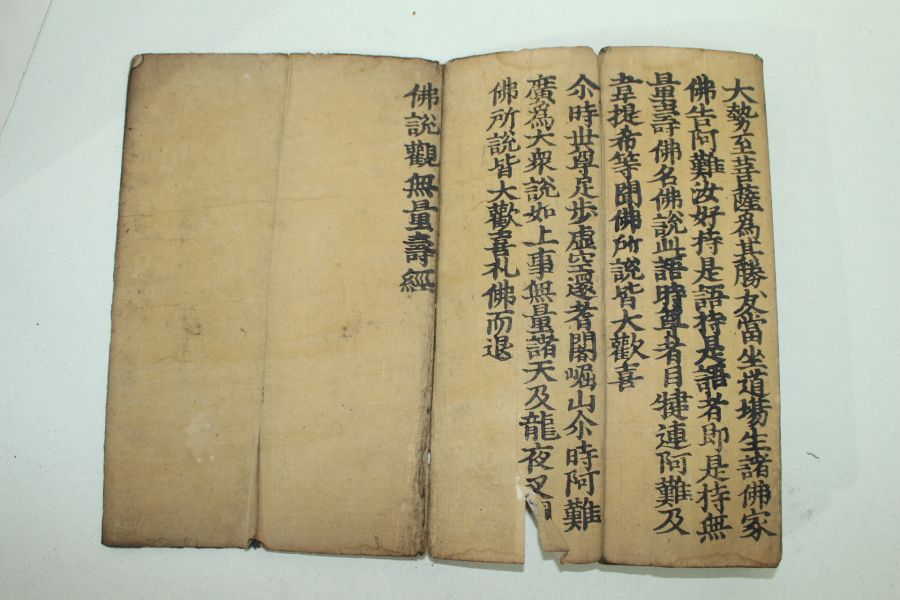 大勢至菩薩爲其勝友當坐道場生諸佛家
佛告阿難汝好持是語持是語者即是持無
量壽佛名佛說此語時尊者目犍連阿難及
韋提希等聞佛所說皆大歡喜
尒時世尊足步虛空還耆闍崛山尒時阿難
廣爲大衆說如上事無量諸天及龍夜叉
佛所說皆大歡喜礼佛而退
佛說觀無量壽經